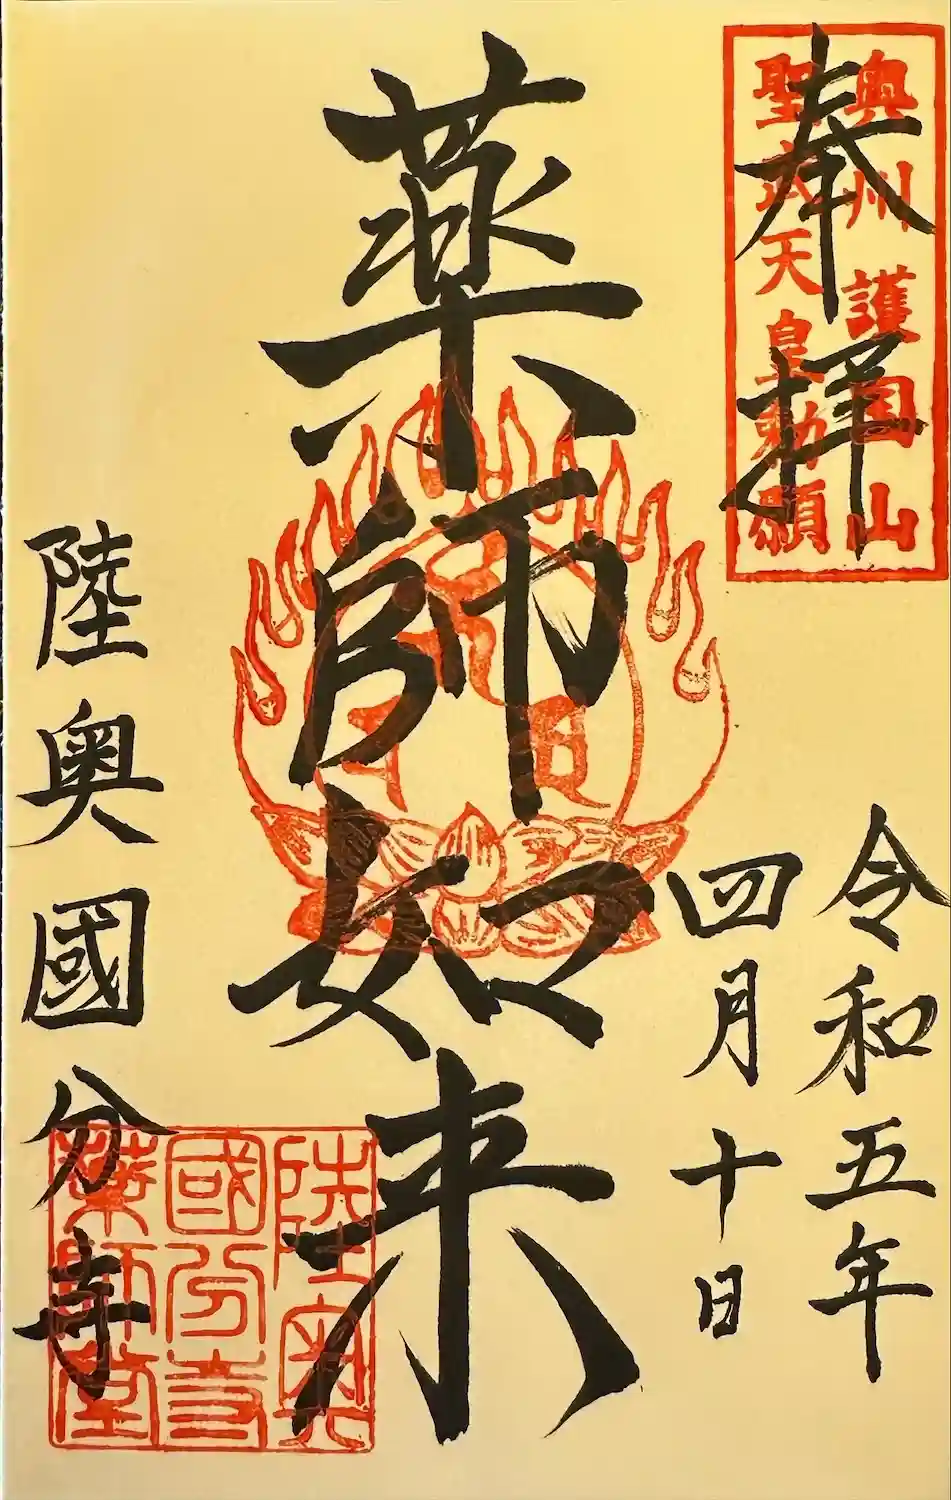 奉拝
奥州護国山
聖武天皇勅願
令和五年
四月十日
薬師如来
陸奥國分寺
陸奥
國分寺
薬師堂